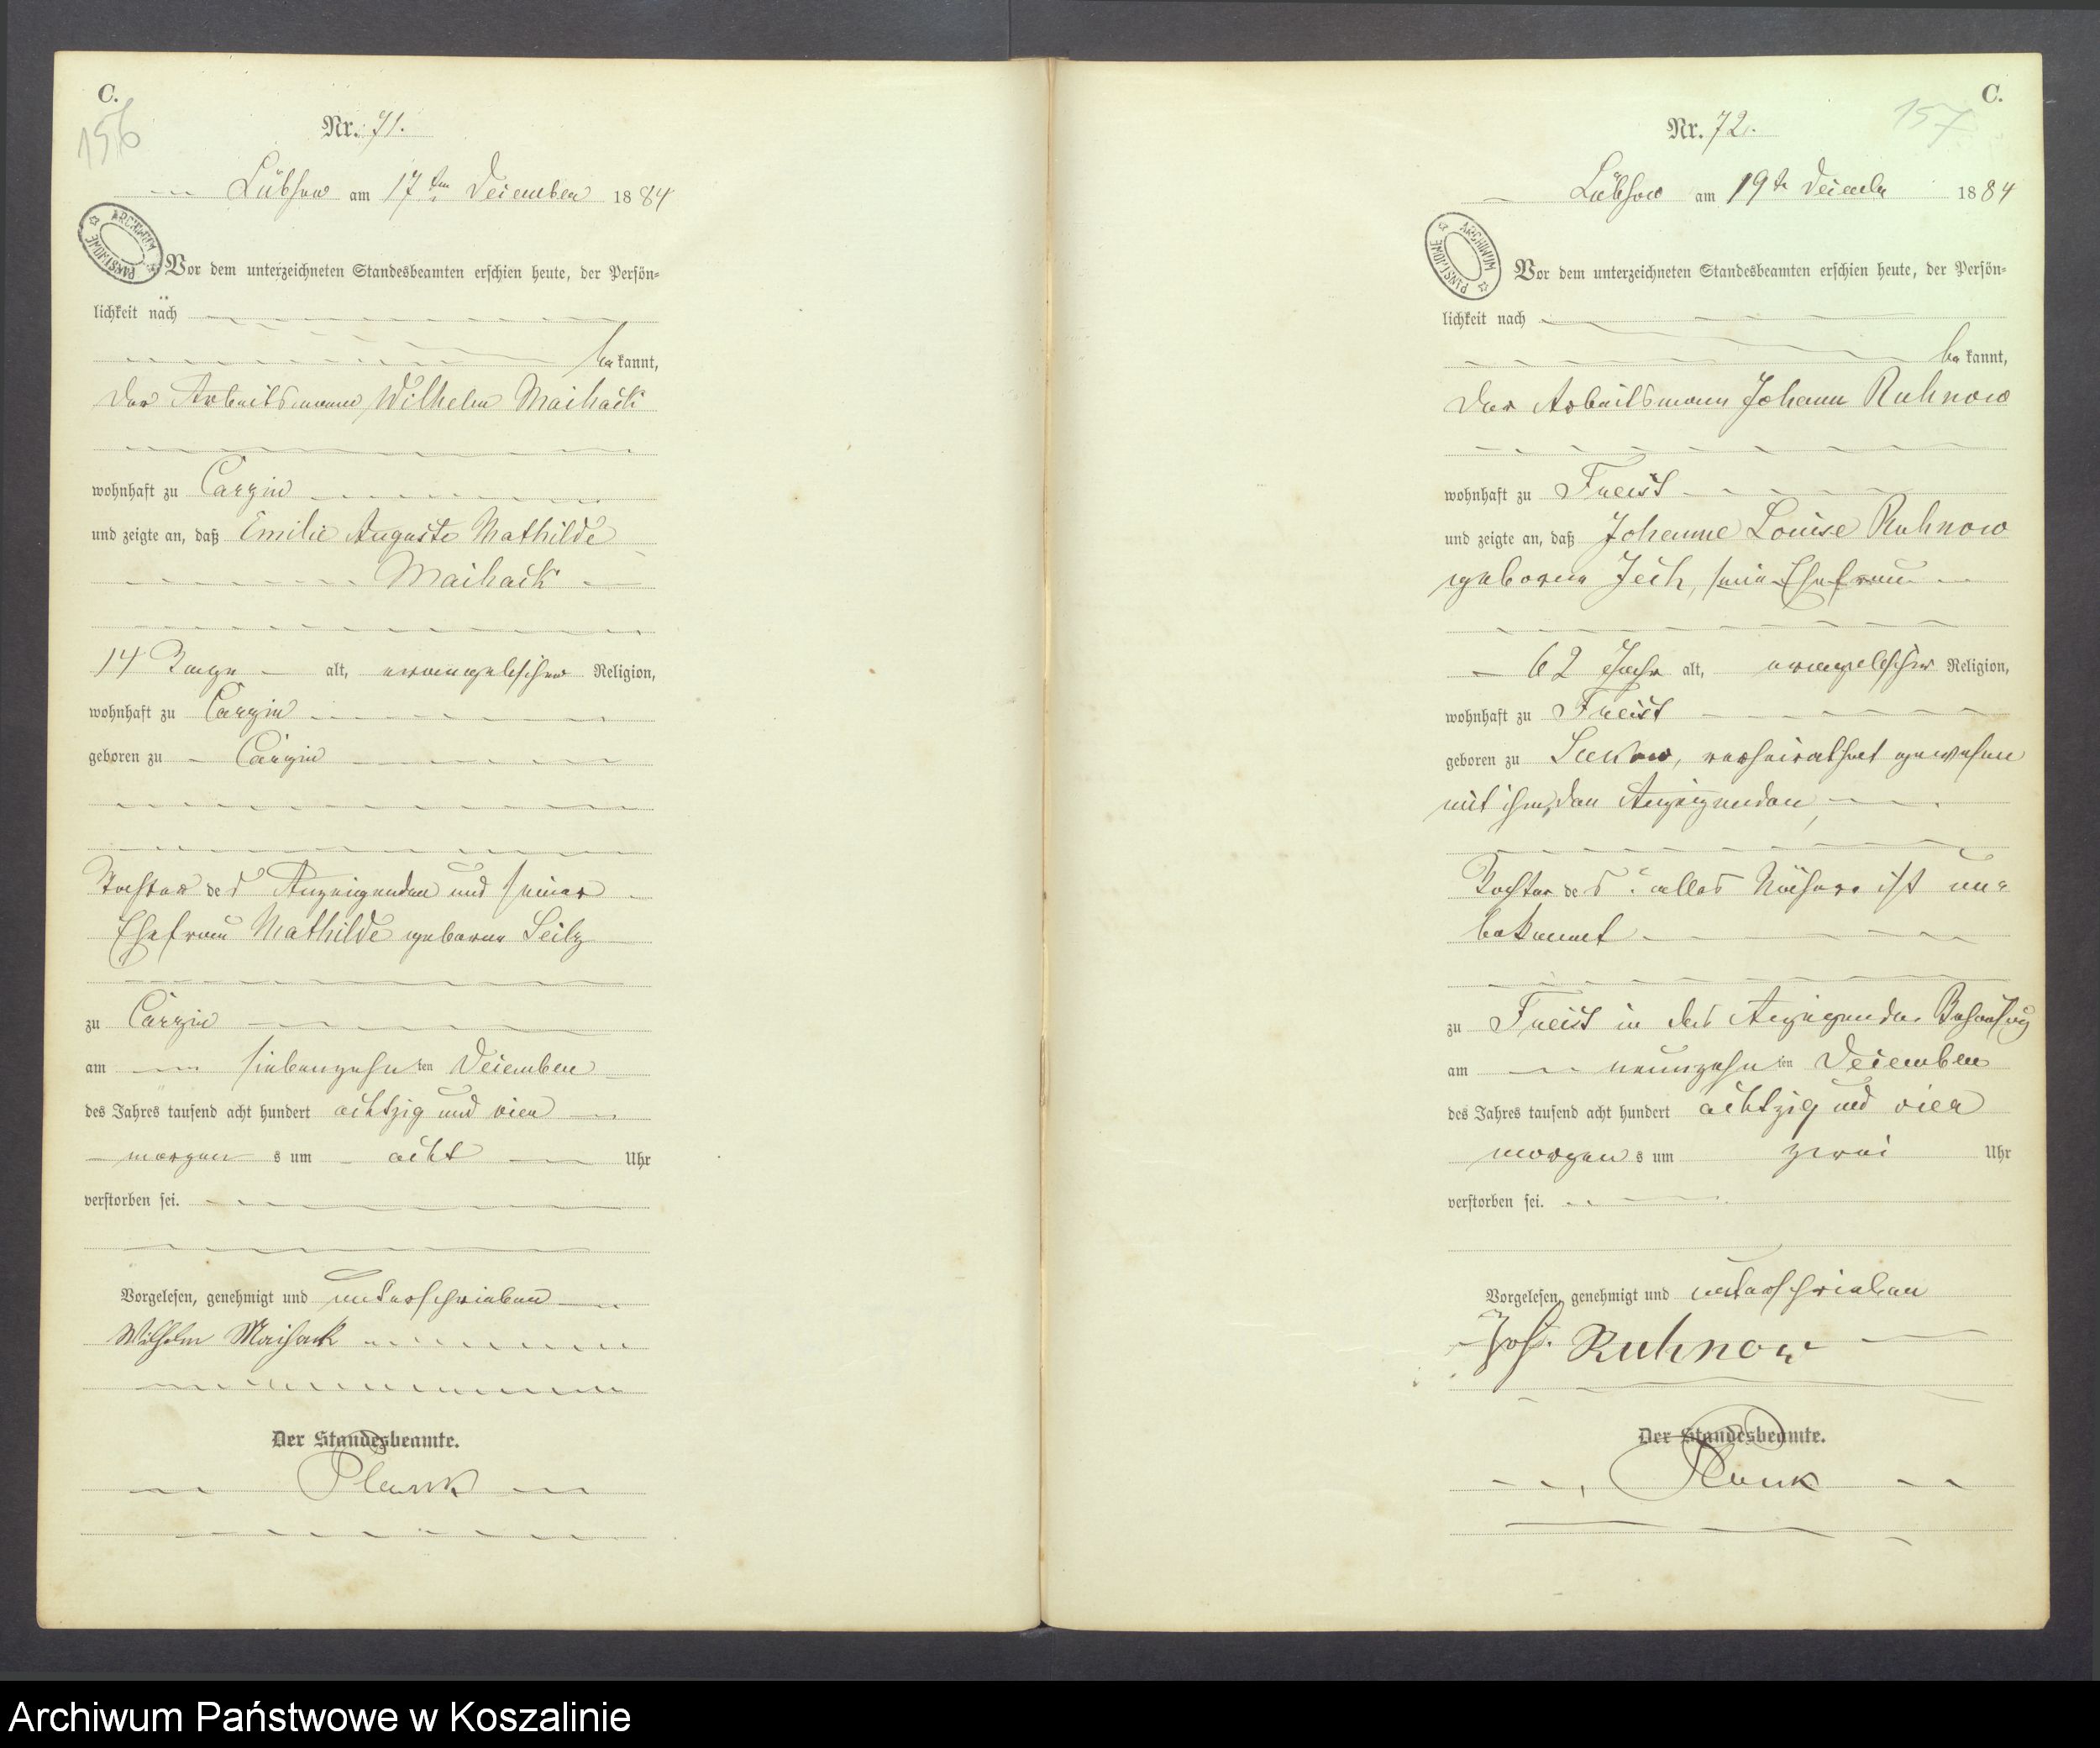 C.
156
Nr. 71.
Lübsow am 17ten December 1884
ARCHIWUM PAŃSTWOWE
Vor dem unterzeichneten Standesbeamten erschien heute, der Persön-
lichkeit nach
bekannt,
der Arbeitsmann Wilhelm Maihack
wohnhaft zu Carzin
und zeigte an, daß Emilie Auguste Mathilde
Maihack
14 Tage alt, evangelischer Religion,
wohnhaft zu Carzin
geboren zu Carzin
Tochter des Anzeigenden und seiner
Ehefrau Mathilde geborne Seilz
zu Carzin
am siebenzehnten December
des Jahres tausend acht hundert achtzig und vier
morgens um acht Uhr
verstorben sei.
Vorgelesen, genehmigt und unterschrieben
Wilhelm Maihack
Der Standesbeamte.
Planck
C.
157
Nr. 72.
Lübsow am 19te December 1884
ARCHIWUM PAŃSTWOWE
Vor dem unterzeichneten Standesbeamten erschien heute, der Persön-
lichkeit nach
bekannt,
der Arbeitsmann Johann Ruhnow
wohnhaft zu Freist
und zeigte an, daß Johanne Louise Ruhnow
geborne Jech, seine Ehefrau
62 Jahr alt, evangelischer Religion,
wohnhaft zu Freist
geboren zu verheirathet gewesen
mit ihm, den Anzeigenden,
Tochter des: alles Nähere ist un-
bekannt
zu Freist in des Anzeigenden Behausung
am neunzehnten December
des Jahres tausend acht hundert achtzig und vier
morgens um zwei Uhr
verstorben sei.
Vorgelesen, genehmigt und unterschrieben
Joh. Ruhnow
Der Standesbeamte.
Planck
Archiwum Państwowe w Koszalinie